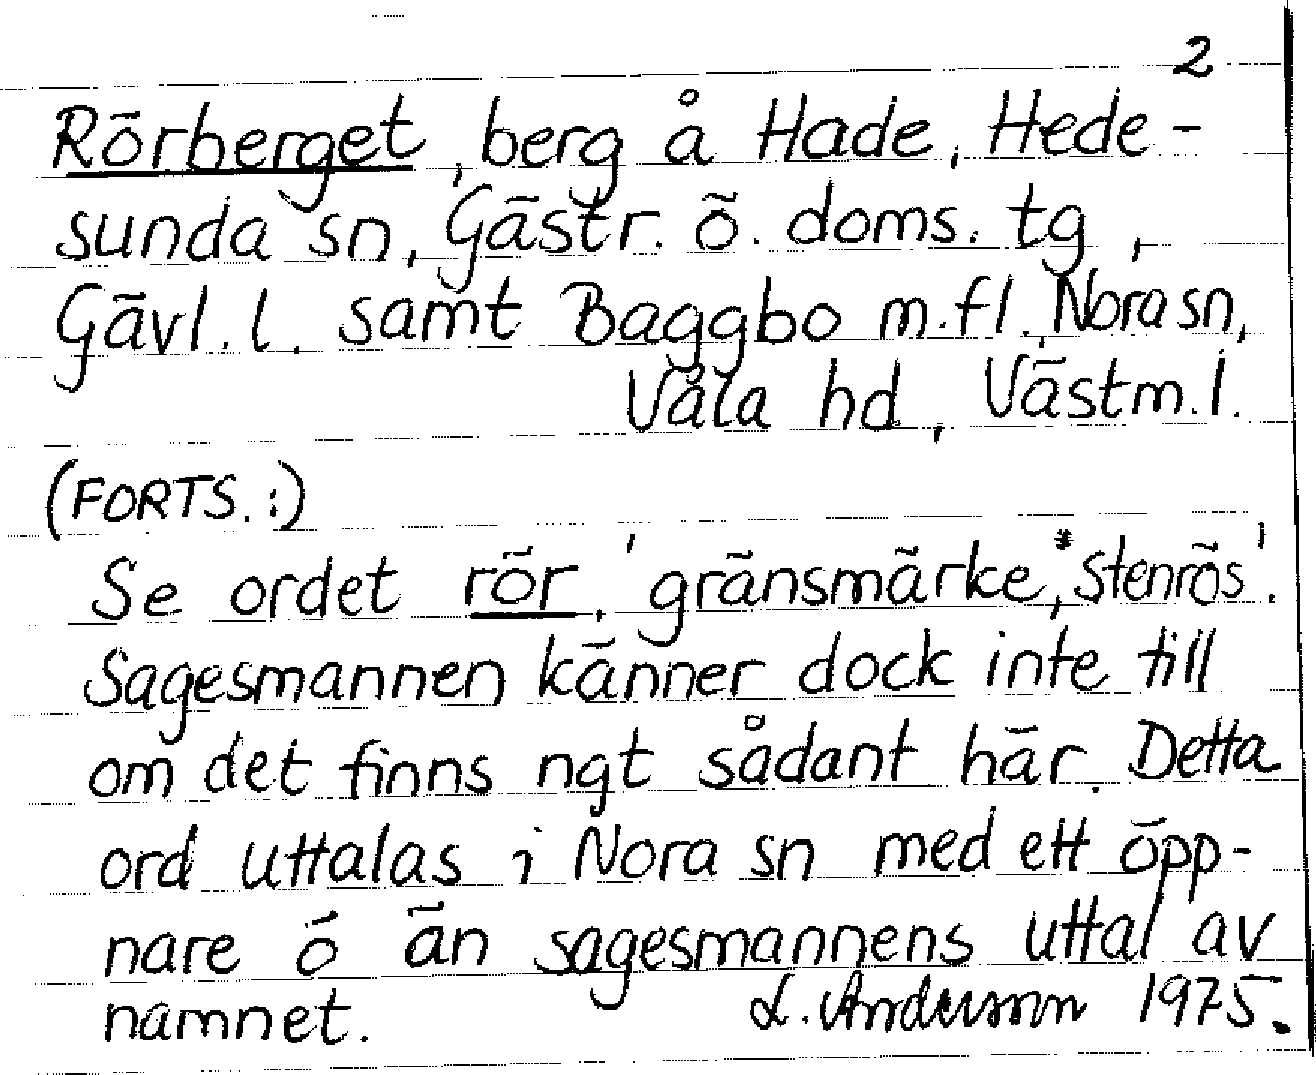 2
Rörberget, berg å Hade, Hede-
sunda sn, Gästr. ö. doms. tg,
Gävl. l. samt Baggbo m.fl., Nora sn,
Våla hd, Västm. l.
(FORTS.:)
Se ordet rör, 'gränsmärke,* stenrös'.
Sagesmannen känner dock inte till
om det finns ngt sådant här. Detta
ord uttalas i Nora sn med ett öpp-
nare ö än sagesmannens uttal av
namnet. L. Andersson 1975.